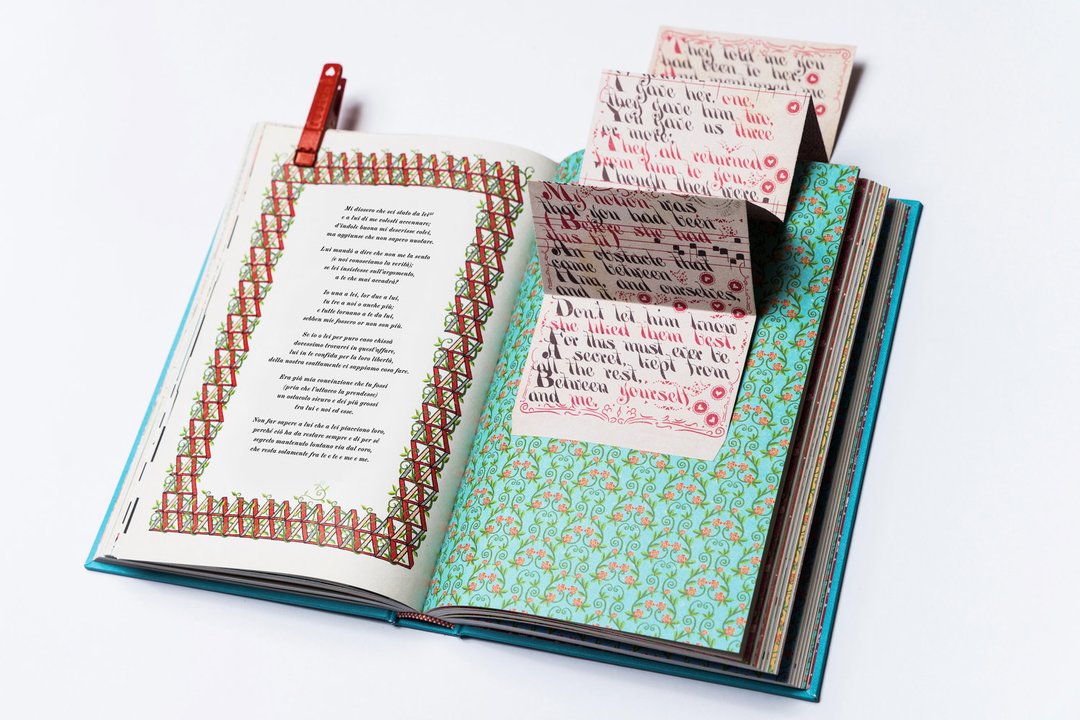 Mi dissero che sei stato da lei
e a lui di me volesti accennare;
d'indole buona mi descrisse colei,
ma aggiunse che non sapevo nuotare.
Lui mandò a dire che non me la sento
(e noi conosciamo la verità);
se lei insistesse sull'argomento,
a te che mai accadrà?
Io una a lei, lor due a lui,
tu tre a noi o anche più;
e tutte tornano a te da lui,
sebben mie fossero or non son più.
Se io o lei per puro caso chissà
dovessimo trovarci in quest'affare,
lui in te confida per la loro libertà,
della nostra esattamente ci sappiamo cosa fare.
Era già mia convinzione che tu fossi
(pria che l'attacco la prendesse)
un ostacolo sicuro e dei più grossi
tra lui e noi ed esse.
Non far sapere a lui che a lei piacciono loro,
perché ciò ha da restare sempre e di per sé
segreto mantenuto lontano via dal coro,
che resta solamente fra te e te e me e me.
They told me you
had been to her,
and mentioned me
I gave her one,
they gave him two,
You gave us three
or more;
They all returned
from him to you,
Though they were
My notion was
that you had been
Before she had
this fit
An obstacle that
came between
Him, and ourselves,
and it
Don't let him know
she liked them best,
For this must ever be
A secret, kept from
all the rest,
Between yourself
and me.